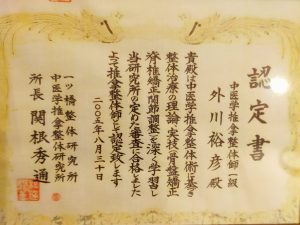 認定書
中医学推拿整体師一級
外川裕彦殿
貴殿は中医学推拿整体術に基き
整体治療の理論・実技(骨盤矯正
脊椎矯正関節調整)を深く学習し
当研究所の定めた審査に合格しました
よって推拿整体師として認定致します
二〇〇五年八月三十日
一ツ橋整体研究所
中医学推拿整体研究所
所長 関根秀通